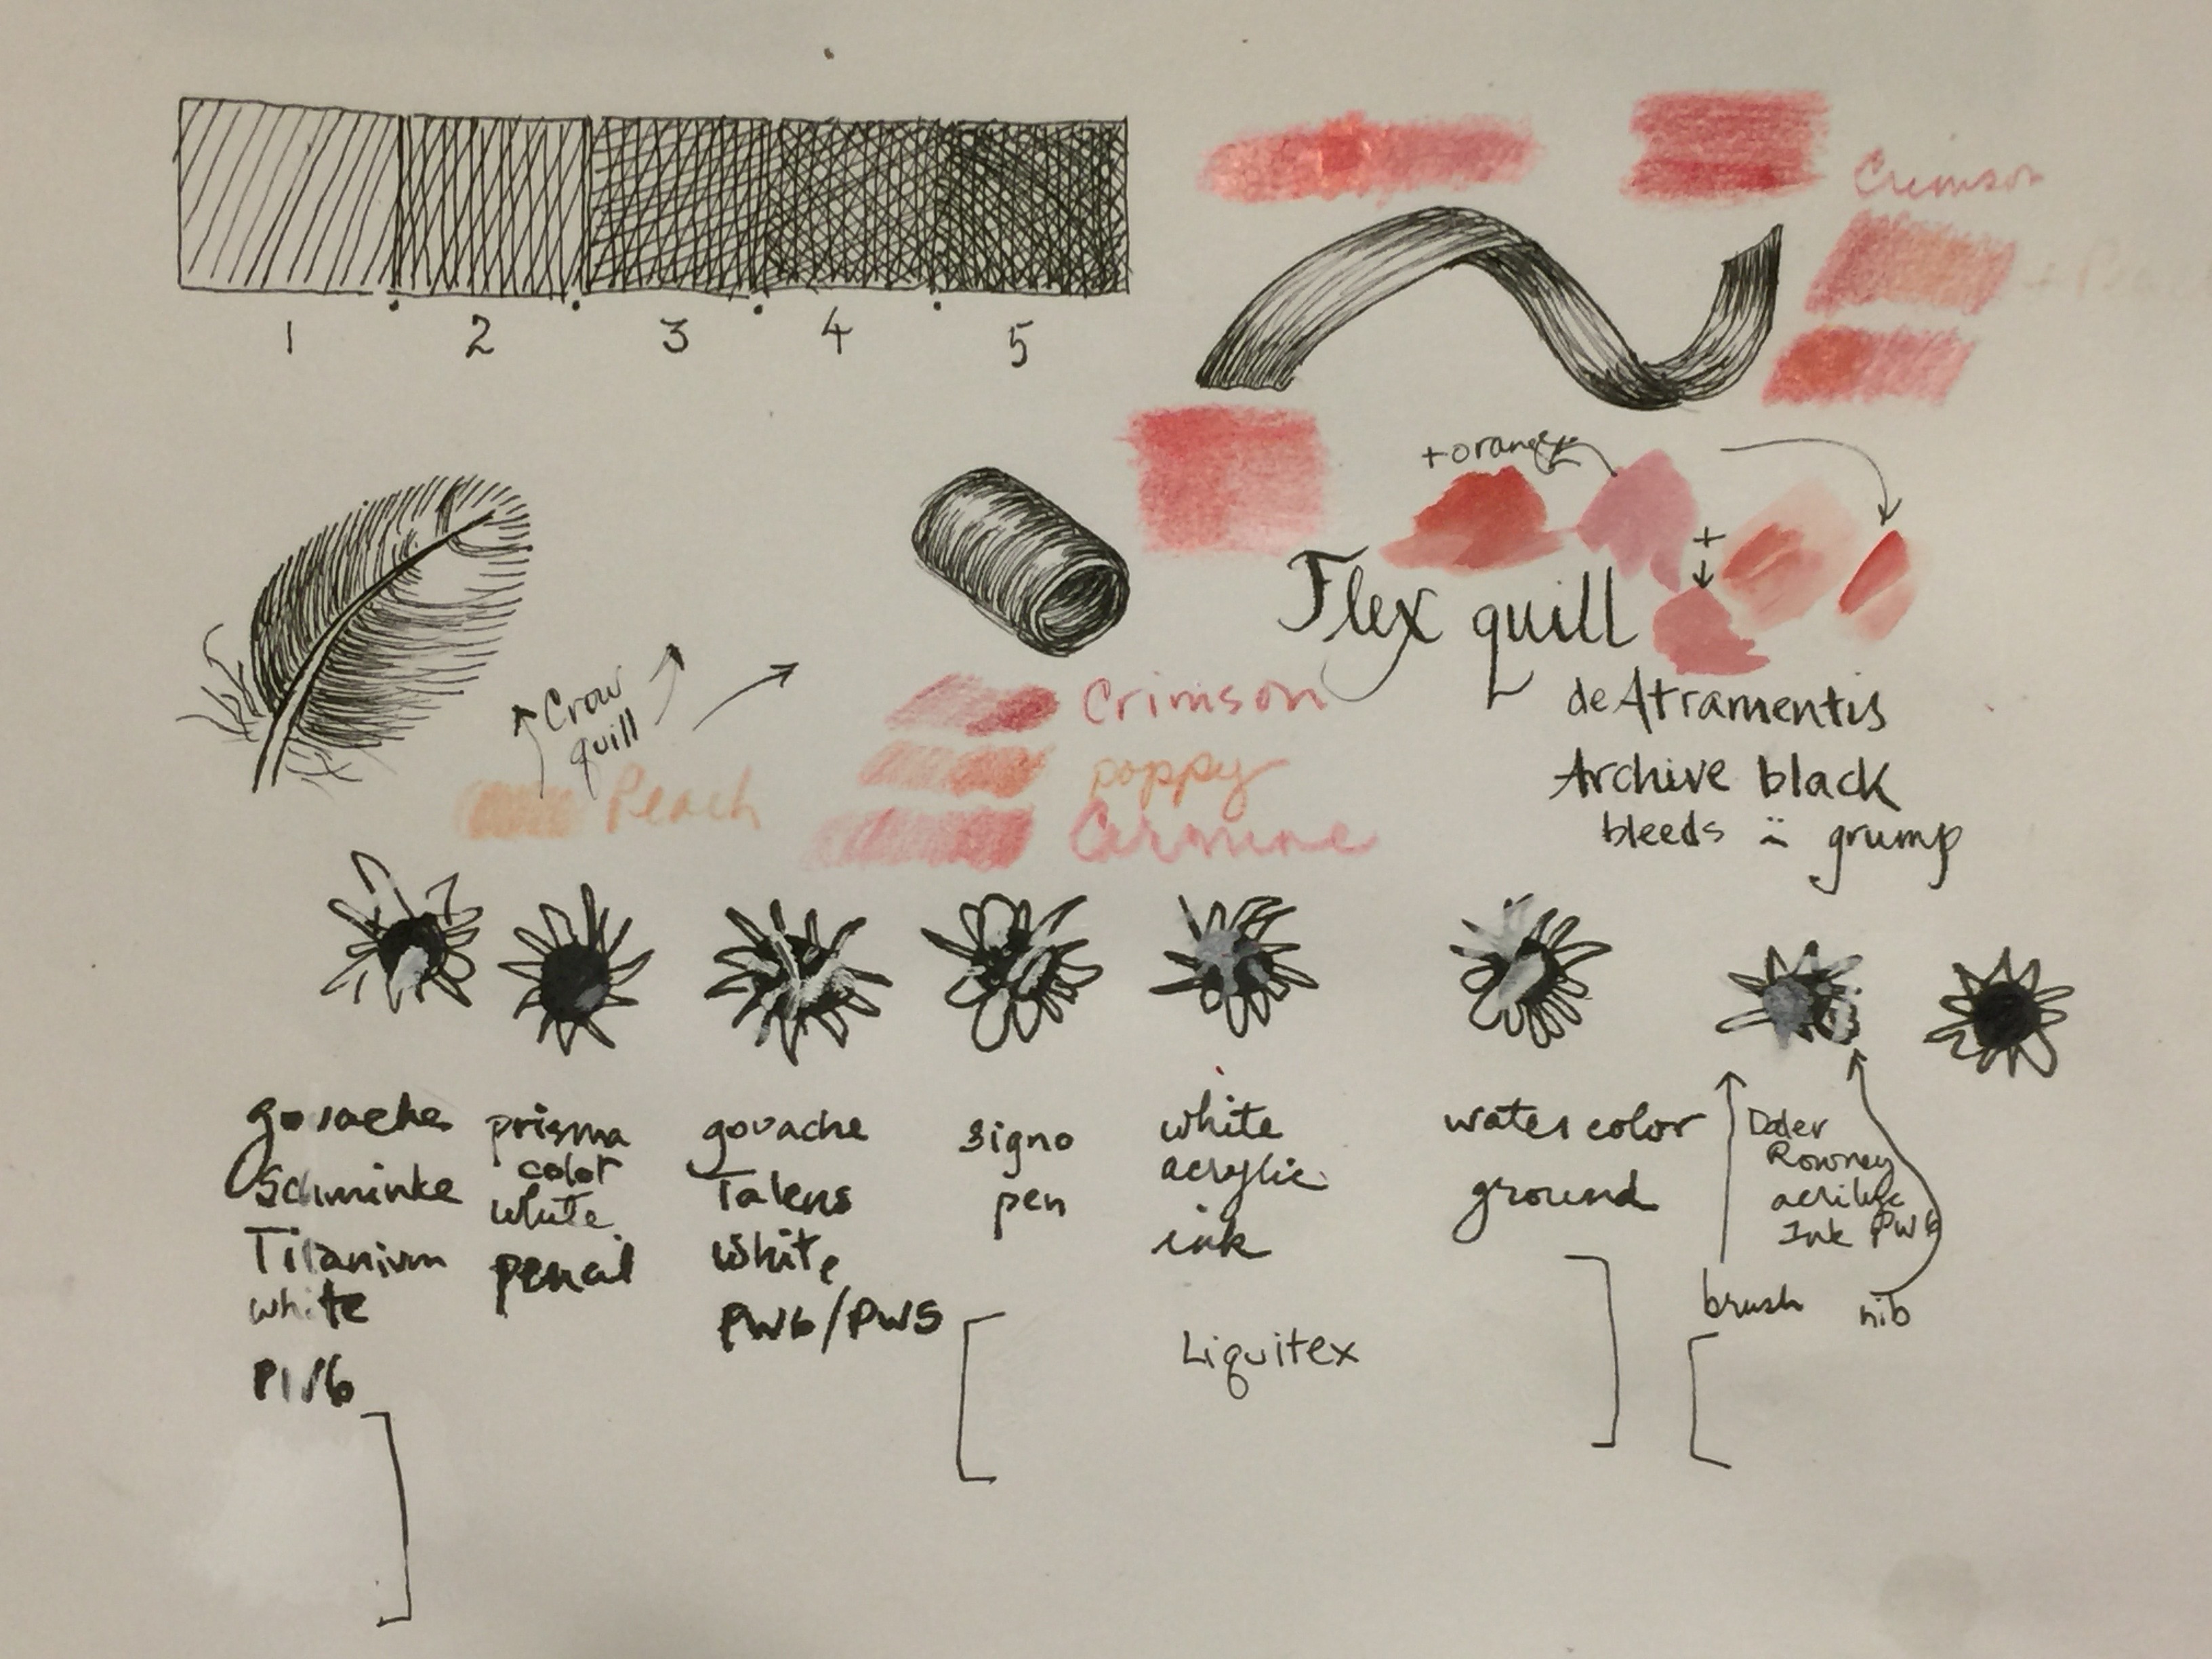 1 2 3 4 5
Crimson
+ Peach
+orange
+
Crow
quill
Flex quill
Crimson
poppy
Carmine
Peach
deAtramentis
Archive black
bleeds :( grump
gouache
Schminke
Titanium
white
PW6
prisma
color
white
pencil
gouache
Talens
White
PW6/PW5
signo
pen
white
acrylic
ink
Liquitex
watercolor
ground
Daler
Rowney
acrilyc
Ink PW6
brush
nib